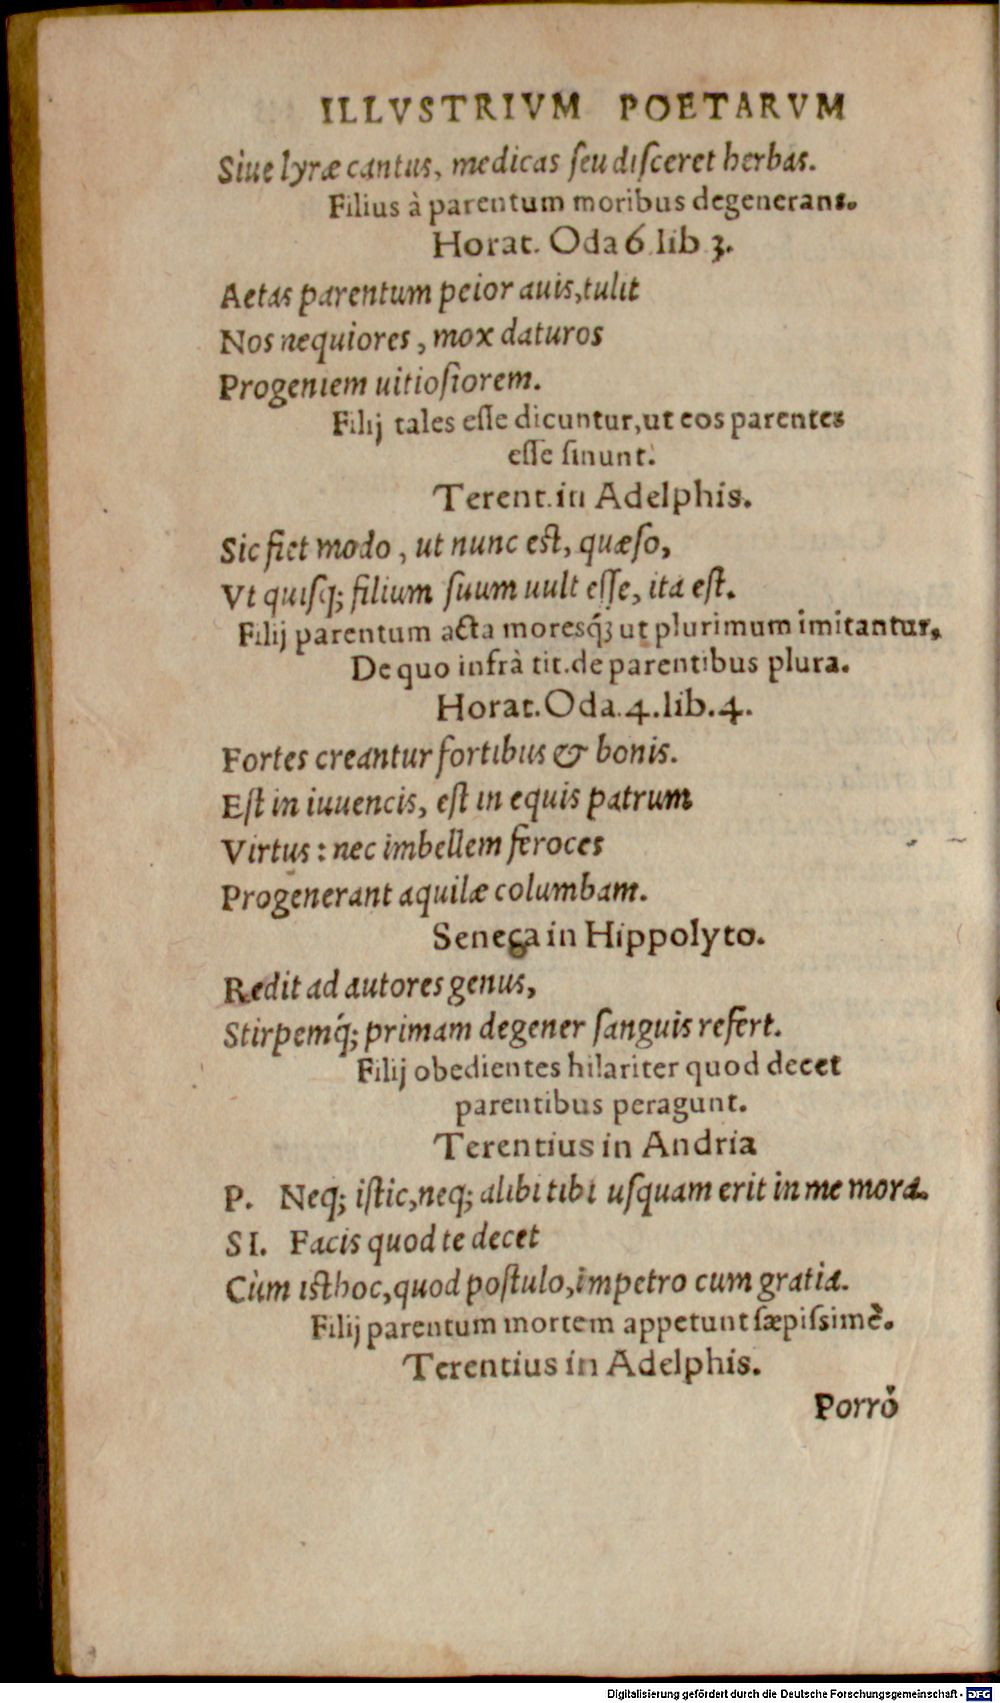 ILLVSTRIVM POETARVM
Siue lyræ cantus, medicas ſeu diſceret herbas.
Filius à parentum moribus degenerans.
Horat. Oda 6 lib 3.
Aetas parentum peior auis, tulit
Nos nequiores, mox daturos
Progeniem uitioſiorem.
Filij tales eſſe dicuntur, ut eos parentes
eſſe ſinunt.
Terent. in Adelphis.
Sic fiet modo, ut nunc eſt, quæſo,
Vt quiſq; filium ſuum uult eſſe, ita eſt.
Filij parentum acta moresq́; ut plurimum imitantur,
De quo infrà tit. de parentibus plura.
Horat. Oda. 4. lib. 4.
Fortes creantur fortibus & bonis.
Eſt in iuuencis, eſt in equis patrum
Virtus: nec imbellem feroces
Progenerant aquilæ columbam.
Seneca in Hippolyto.
Redit ad autores genus,
Stirpemq́; primam degener ſanguis refert.
Filij obedientes hilariter quod decet
parentibus peragunt.
Terentius in Andria
P. Neq; iſtic, neq; alibi tibi uſquam erit in me mora.
SI. Facis quod te decet
Cùm iſthoc, quod poſtulo, impetro cum gratia.
Filij parentum mortem appetunt ſæpiſsimè.
Terentius in Adelphis.
Porrò
Digitalisierung gefördert durch die Deutsche Forschungsgemeinschaft - DFG